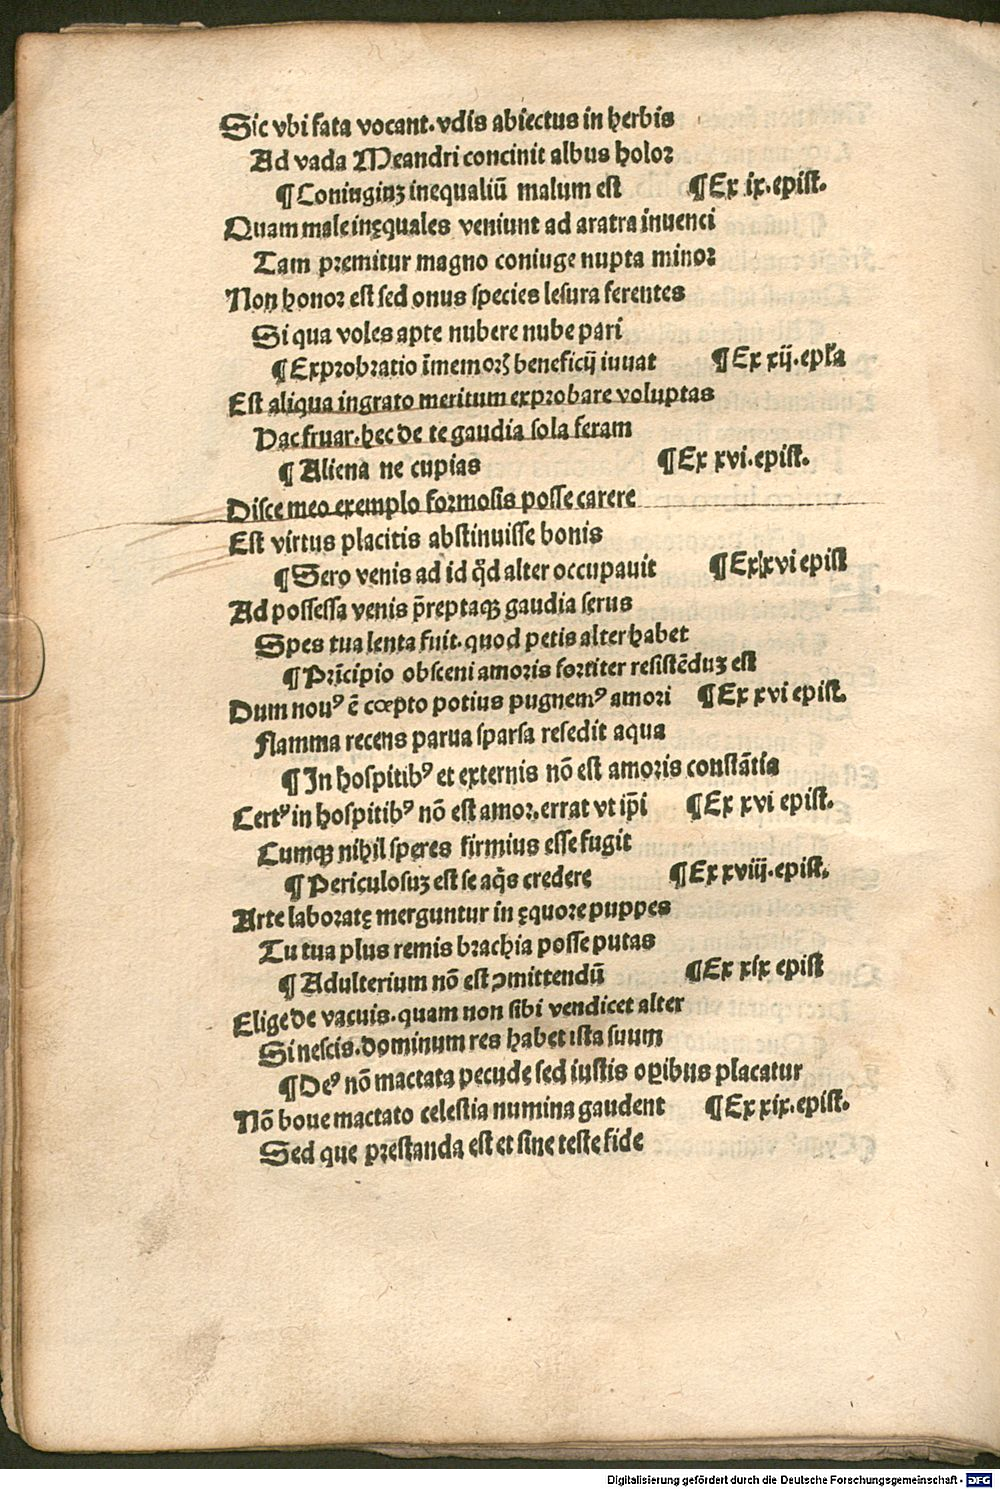 Sic vbi fata vocant. vdis abiectus in herbis
Ad vada Meandri concinit albus holor
¶ Coniugiuꝫ inequaliū malum est ¶ Ex ix. epist.
Quam male inęquales veniunt ad aratra inuenci
Tam premitur magno coniuge nupta minor
Non honor est sed onus species lesura ferentes
Si qua voles apte nubere nube pari
¶ Exprobratio īmemorꝭ beneficij iuuat ¶ Ex xij. epl'a
Est aliqua ingrato meritum exprobare voluptas
Hac fruar. hec de te gaudia sola feram
¶ Aliena ne cupias ¶ Ex xvi. epist.
Disce meo exemplo formosis posse carere
Est virtus placitis abstinuisse bonis
¶ Sero venis ad id qd̄ alter occupauit ¶ Ex xvi epist
Ad possessa venis p̄reptaqꝫ gaudia serus
Spes tua lenta fuit. quod petis alter habet
¶ Prīcipio obsceni amoris fortiter resistēduꝫ est
Dum nouꝰ ē cœpto potius pugnemꝰ amori ¶ Ex xvi epist.
Flamma recens parua sparsa resedit aqua
¶ In hospitibꝰ et externis nō est amoris constātia
Certꝰ in hospitibꝰ nō est amor, errat vt ip̄i ¶ Ex xvi epist.
Cumqꝫ nihil speres firmius esse fugit
¶ Periculosuꝫ est se aq̄s credere ¶ Ex xviij. epist.
Arte laboratę merguntur in ęquore puppes
Tu tua plus remis brachia posse putas
¶ Adulterium nō est ꝯmittendū ¶ Ex xix epist
Elige de vacuis. quam non sibi vendicet alter
Si nescis. dominum res habet ista suum
¶ Deꝰ nō mactata pecude sed iustis oꝑibus placatur
Nō boue mactato celestia numina gaudent ¶ Ex xix. epist.
Sed que prestanda est et sine teste fide
Digitalisierung gefördert durch die Deutsche Forschungsgemeinschaft - DFG